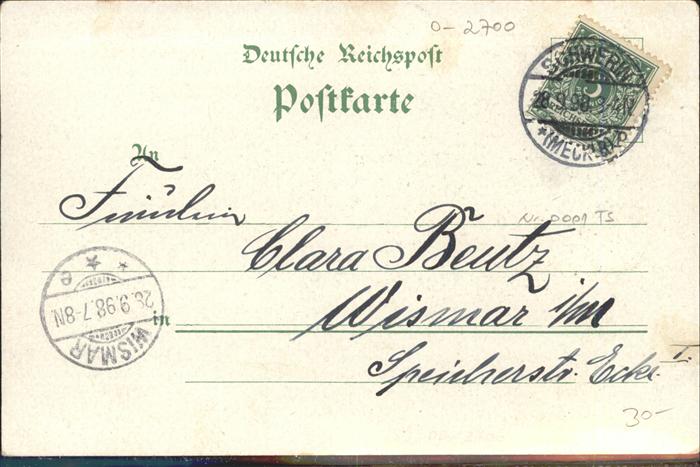 0-2700
Deutsche Reichspost
Postkarte
SCHWERIN
28.9.98
*(MECKLB)
An
Fräulein
Nr. 0001 TS
Clara Beutz
WISMAR
28.9.98.7-8N.
e
in
Wismar i/m
I.
Speicherstr. Ecke
30-